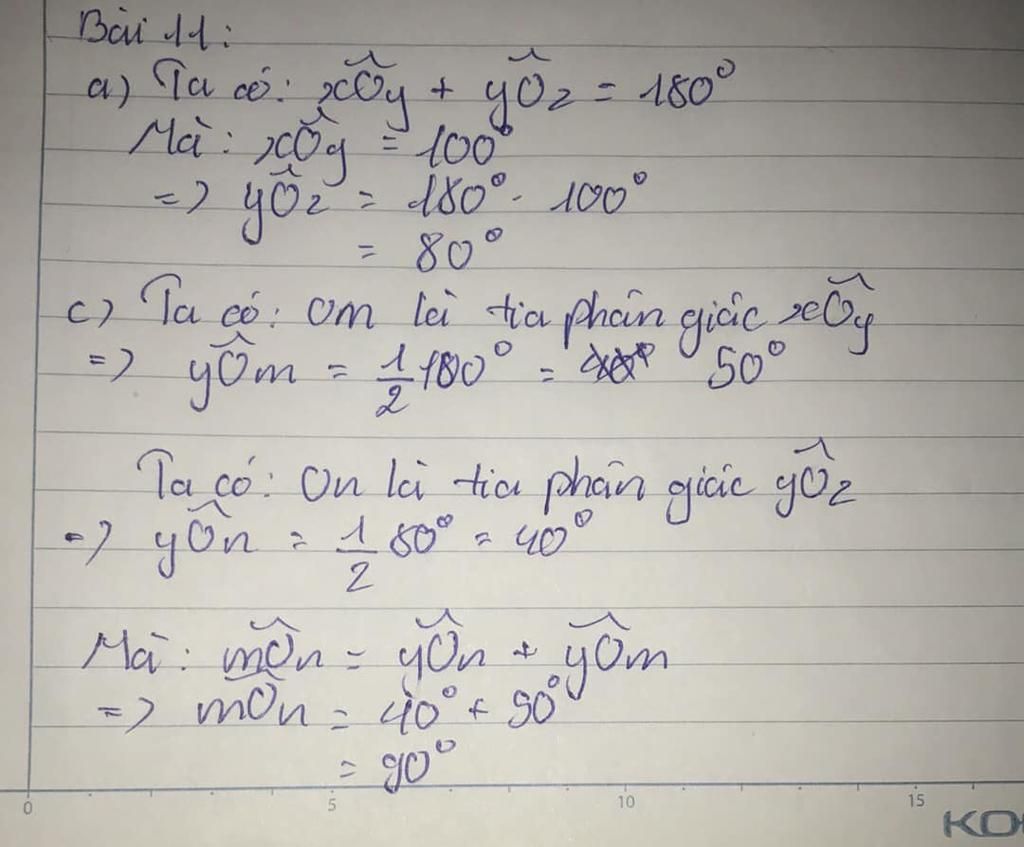 Bài 11:
a) Ta có: xÔy + yÔz = 180°
Mà: xÔy = 100°
=> yÔz = 180° - 100°
= 80°
c) Ta có: Om là tia phân giác xÔy
=> yÔm = 1/2 100° = 50°
Ta có: On là tia phân giác yÔz
=> yÔn = 1/2 80° = 40°
Mà: mÔn = yÔn + yÔm
=> mÔn = 40° + 50°
= 90°
0 5 10 15